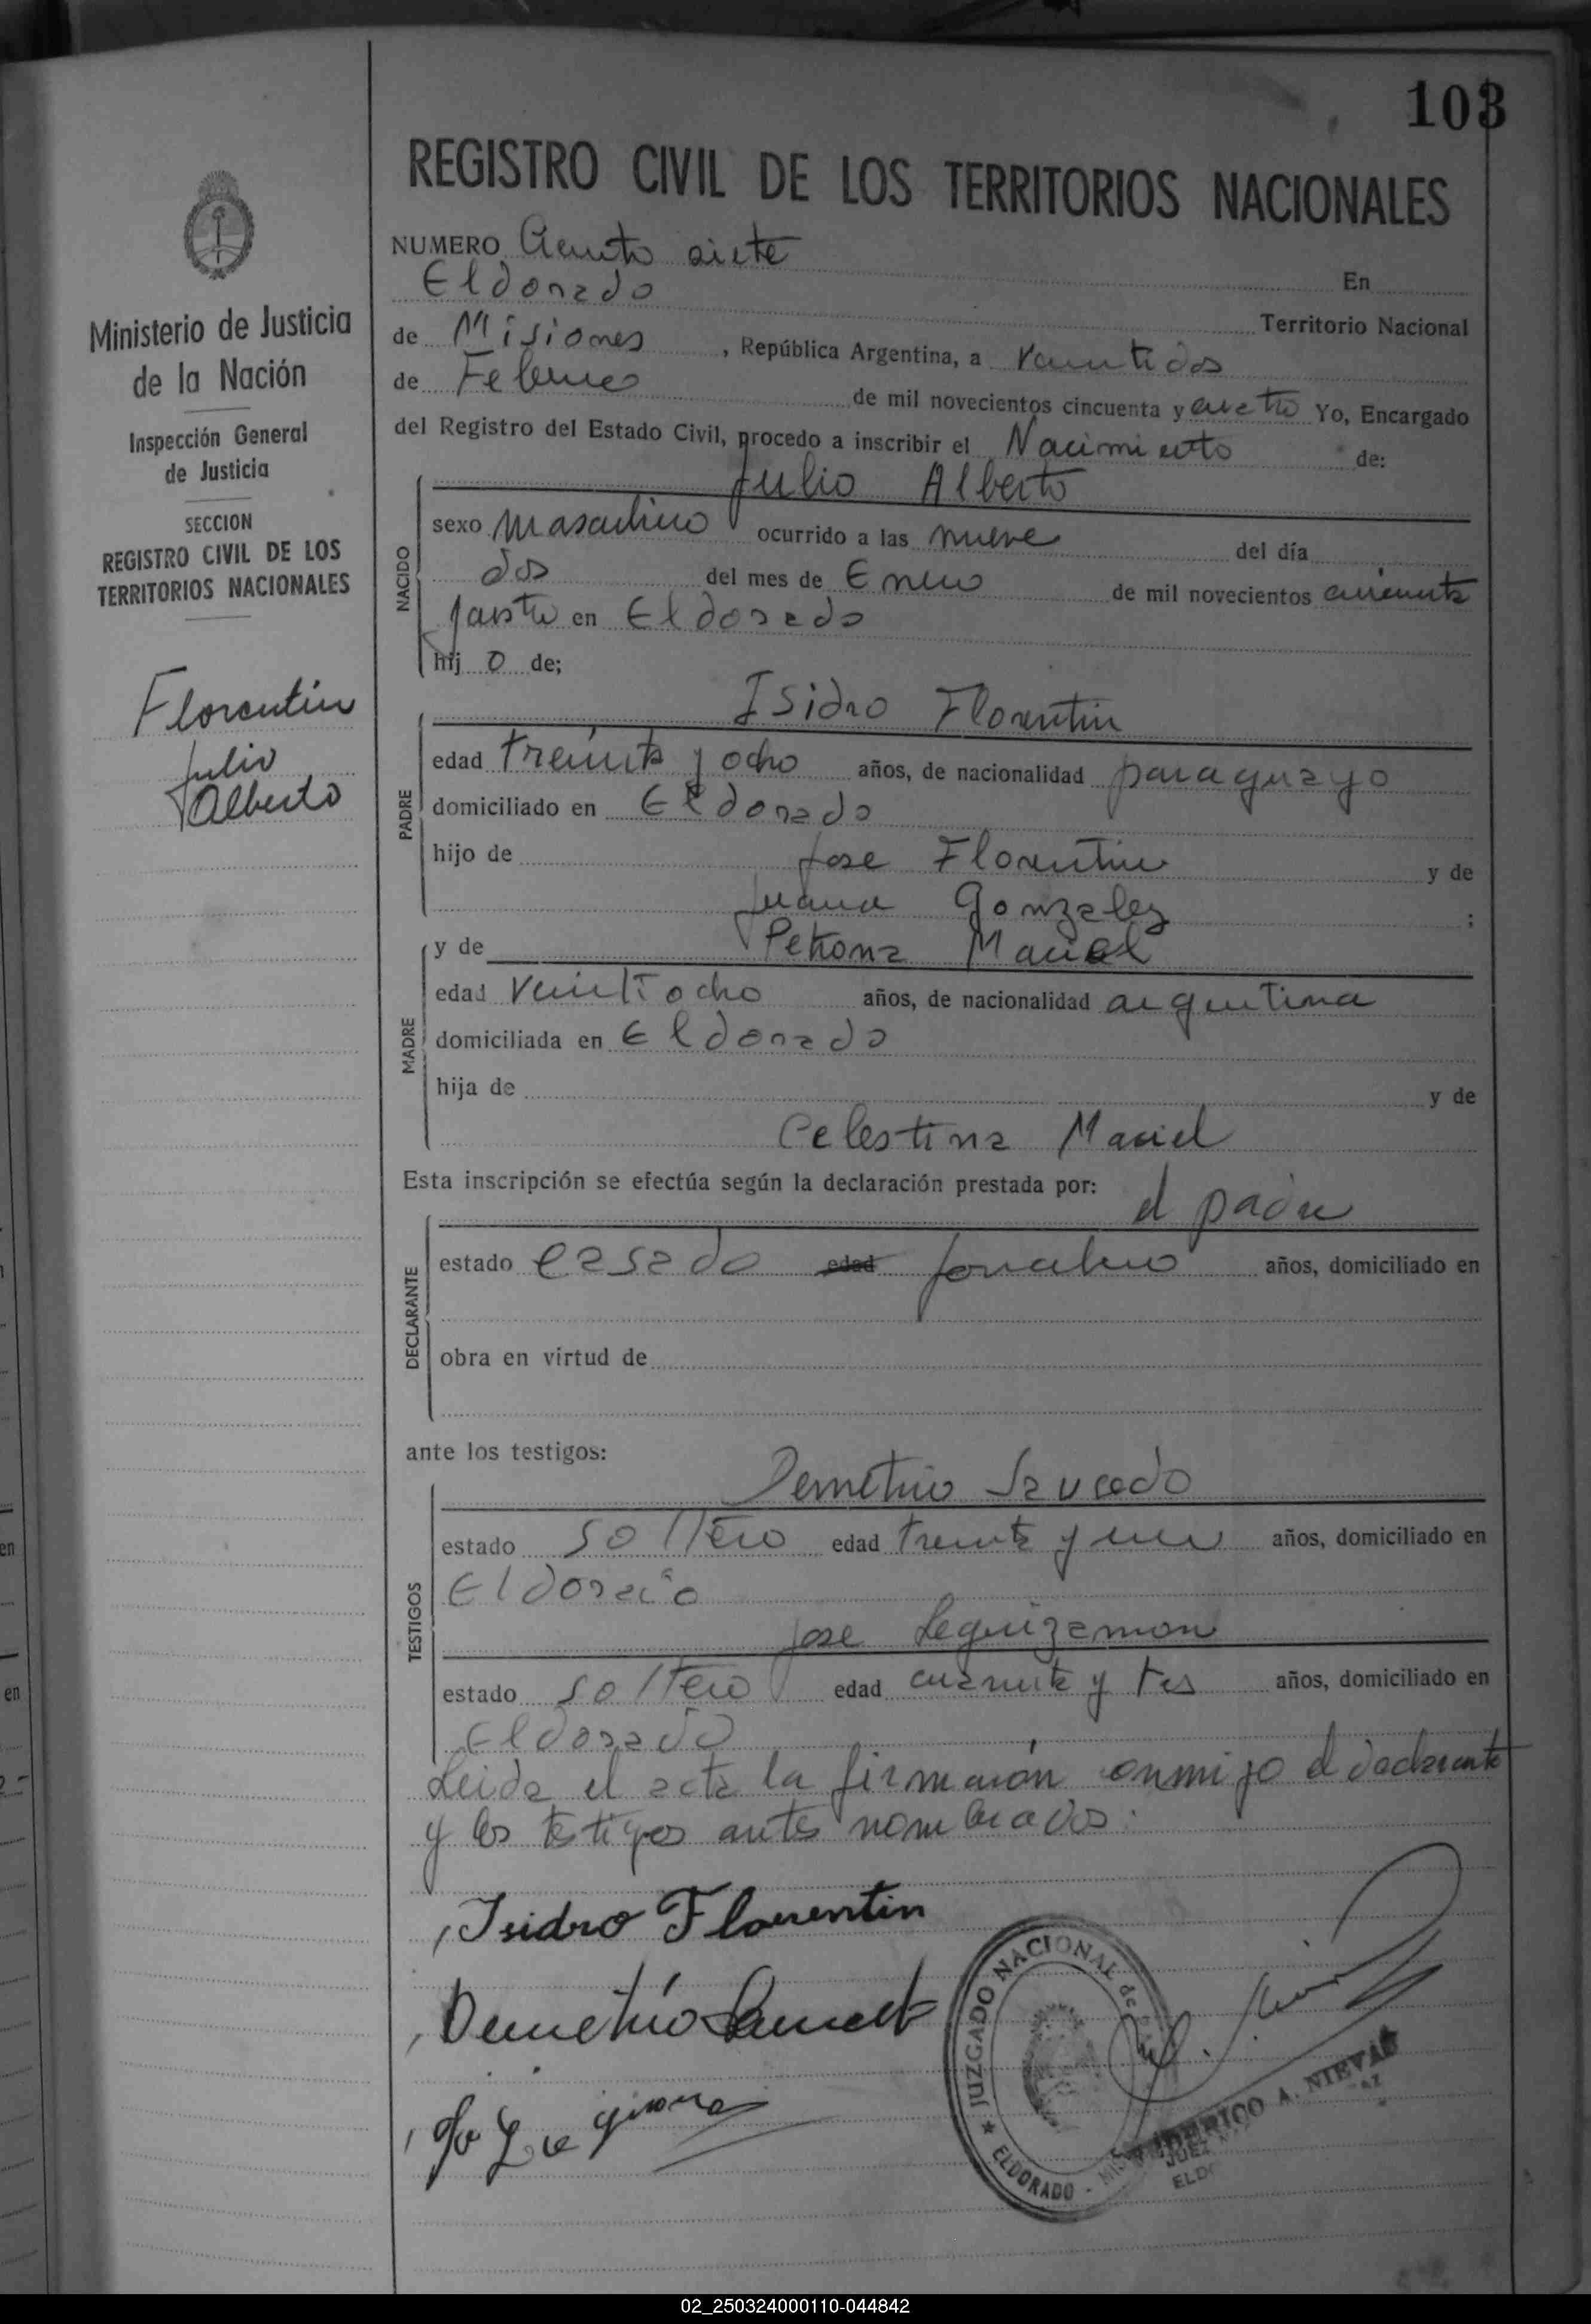 103
REGISTRO CIVIL DE LOS TERRITORIOS NACIONALES
Ministerio de Justicia
de la Nación
Inspección General
de Justicia
SECCION
REGISTRO CIVIL DE LOS
TERRITORIOS NACIONALES
Florentin
Julio
Alberto
NUMERO Ciento siete
En
Eldorado
Territorio Nacional
de Misiones, República Argentina, a veintidos
de Febrero de mil novecientos cincuenta y cuatro Yo, Encargado
del Registro del Estado Civil, procedo a inscribir el Nacimiento de:
Julio Alberto
NACIDO
sexo masculino ocurrido a las nueve del día
dos del mes de Enero de mil novecientos cincuenta
en Eldorado
hij o de;
Isidro Florentin
PADRE
edad treinta y ocho años, de nacionalidad paraguayo
domiciliado en Eldorado
hijo de Jose Florentin y de
Juana Gonzalez ;
y de Petrona Maciel
MADRE
edad veintiocho años, de nacionalidad argentina
domiciliada en Eldorado
hija de y de
Celestina Maciel
Esta inscripción se efectúa según la declaración prestada por: el padre
DECLARANTE
estado casado edad jornalero años, domiciliado en
obra en virtud de
ante los testigos:
Demetrio Saucedo
TESTIGOS
estado soltero edad treinta y un años, domiciliado en
Eldorado
Jose Leguizamon
estado soltero edad cuarenta y tres años, domiciliado en
Eldorado
Leida el acta la firmaron conmigo el declarante
y los testigos antes nombrados.
Isidro Florentin
Demetrio
JUZGADO NACIONAL de
ELDORADO - MIS
A. NIEVAS
JUEZ
ELDO
02_250324000110-044842